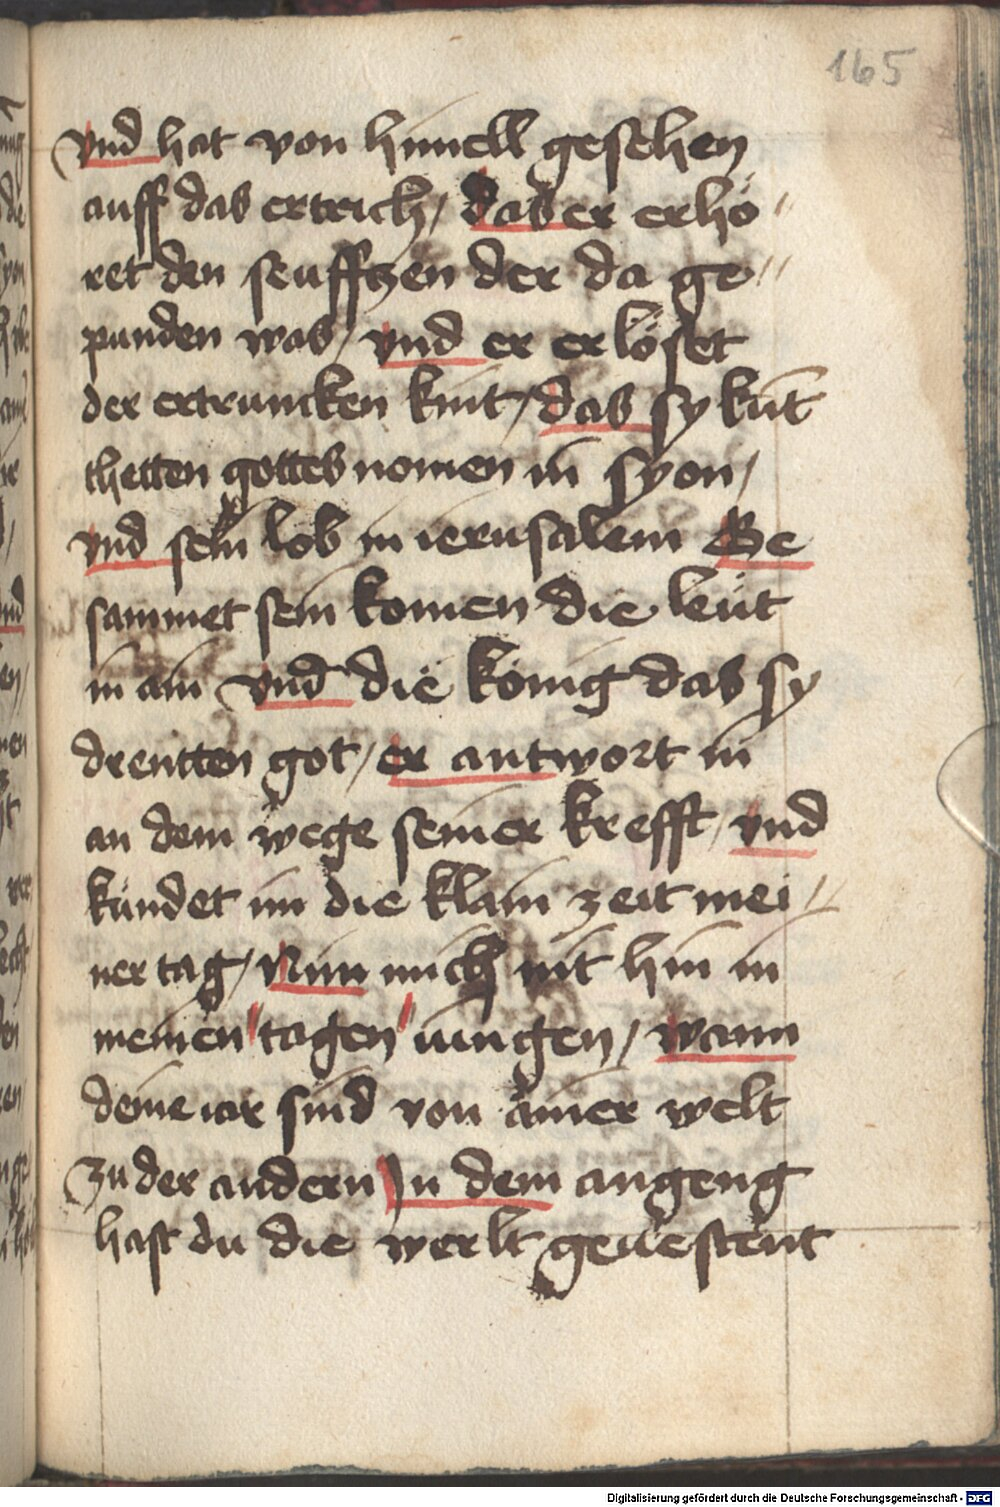 165
vnd hat von himell gesehen
auff das ertrich / das er erhö //
ret den seufftzen der da ge //
punden was / vnd er erlöset
der ertruncken kint / das sy kūt
thetten gottes nomen in syon /
vnd sein lob in ierusalem Be
sammet sein komen die leüt
in ain vnd die könig das sy
drentten got / er antwort in
an dem wege seiner krefft / vnd
kündet im die klain zeit mei //
ner tag / Nim mich nit hin in
meinen " tagen " iungen / wann
deine iar sind von ainer welt
zu der andern In dem angeng
hast du die werlt geuestent
Digitalisierung gefördert durch die Deutsche Forschungsgemeinschaft - DFG